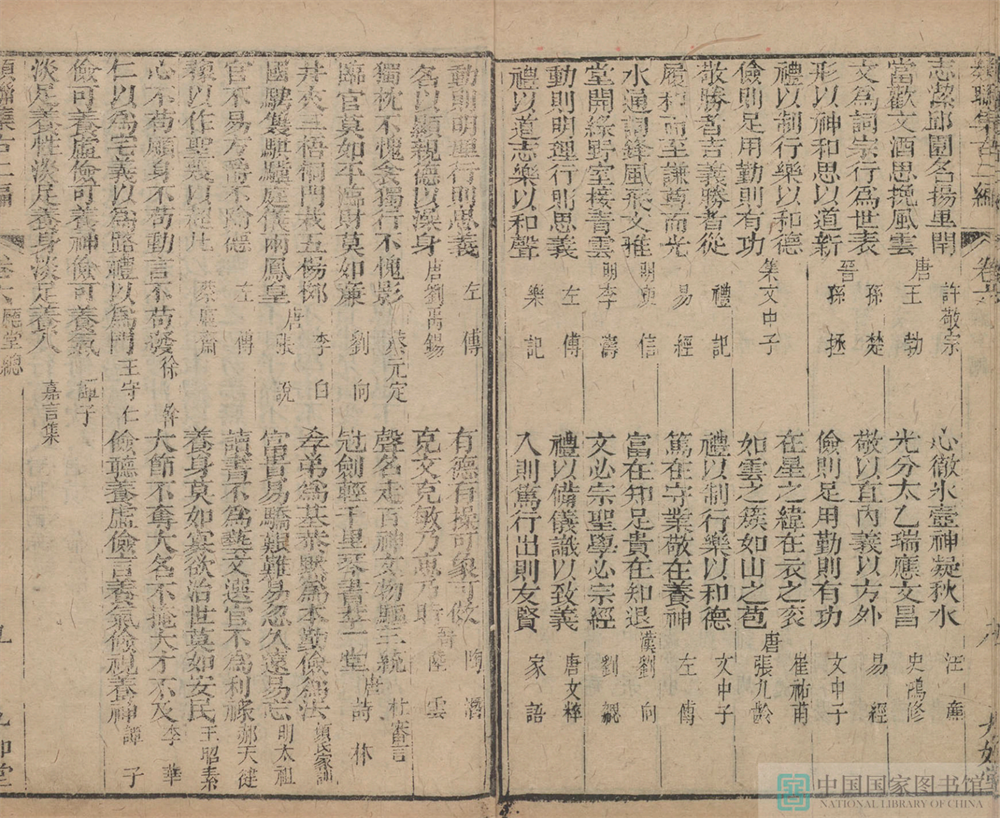 志潔邱園名揚里閈 許敬宗
心徹氷壺神凝秋水 汪
當歡文酒思挽風雲 唐王勃
光分太乙瑞應文昌 史鶴修
文為詞宗行為世表 孫楚
敬以直內義以方外 易經
形以神和思以道新 晉孫拯
儉則足用勤則有功 文中子
禮以制行樂以和德
在星之緯在衣之衮 崔祐甫
儉則足用勤則有功 集文中子
如雲之簇如山之苞 唐張九齡
敬勝者吉義勝者從 禮記
禮以制行樂以和德 文中子
履和而至謙尊而光 易經
篤在守業敬在養神 左傳
水通詞鋒風飛文雅 庾信
富在知足貴在知退 漢劉向
堂開綠野室接青雲 明李濤
文必宗聖學必宗經 劉勰
動則明理行則思義 左傳
禮以備儀識以致義 唐文粹
禮以道志樂以和聲 樂記
入則篤行出則友賢 家語
動則明理行則思義 左傳
有德有操可象可儆 陶潛
名以顯親德以澡身 唐劉禹錫
克文克敏乃惠乃時 晉陸雲
獨枕不愧衾獨行不愧影 蔡元定
聲名走百神文物驅三統 杜審言
臨官莫如平臨財莫如廉 劉向
冠劍輕千里琴書萃一堂 唐詩
井夾三梧桐門栽五楊柳 李白
孝弟為基恭默為本勤儉為法 顏氏家訓
國騁雙騏驥庭儀兩鳳皇 唐張說
富貴易驕艱難易忽久遠易忘 明太祖
官不易方爵不踰德 左傳
讀書不為藝文選官不為利祿 郝天健
養身莫如寡欲治世莫如安民 王昭素
心不苟願身不苟動言不苟發 徐幹
大節不奪大名不掩大才不及 李華
仁以為宅義以為路禮以為門 王守仁
儉聽養虛儉言養氣儉視養神 譚子
儉可養虛儉可養神儉可養氣 譚子
淡足養性淡足養身淡足養人 嘉言集
中国国家图书馆
NATIONAL LIBRARY OF CHINA